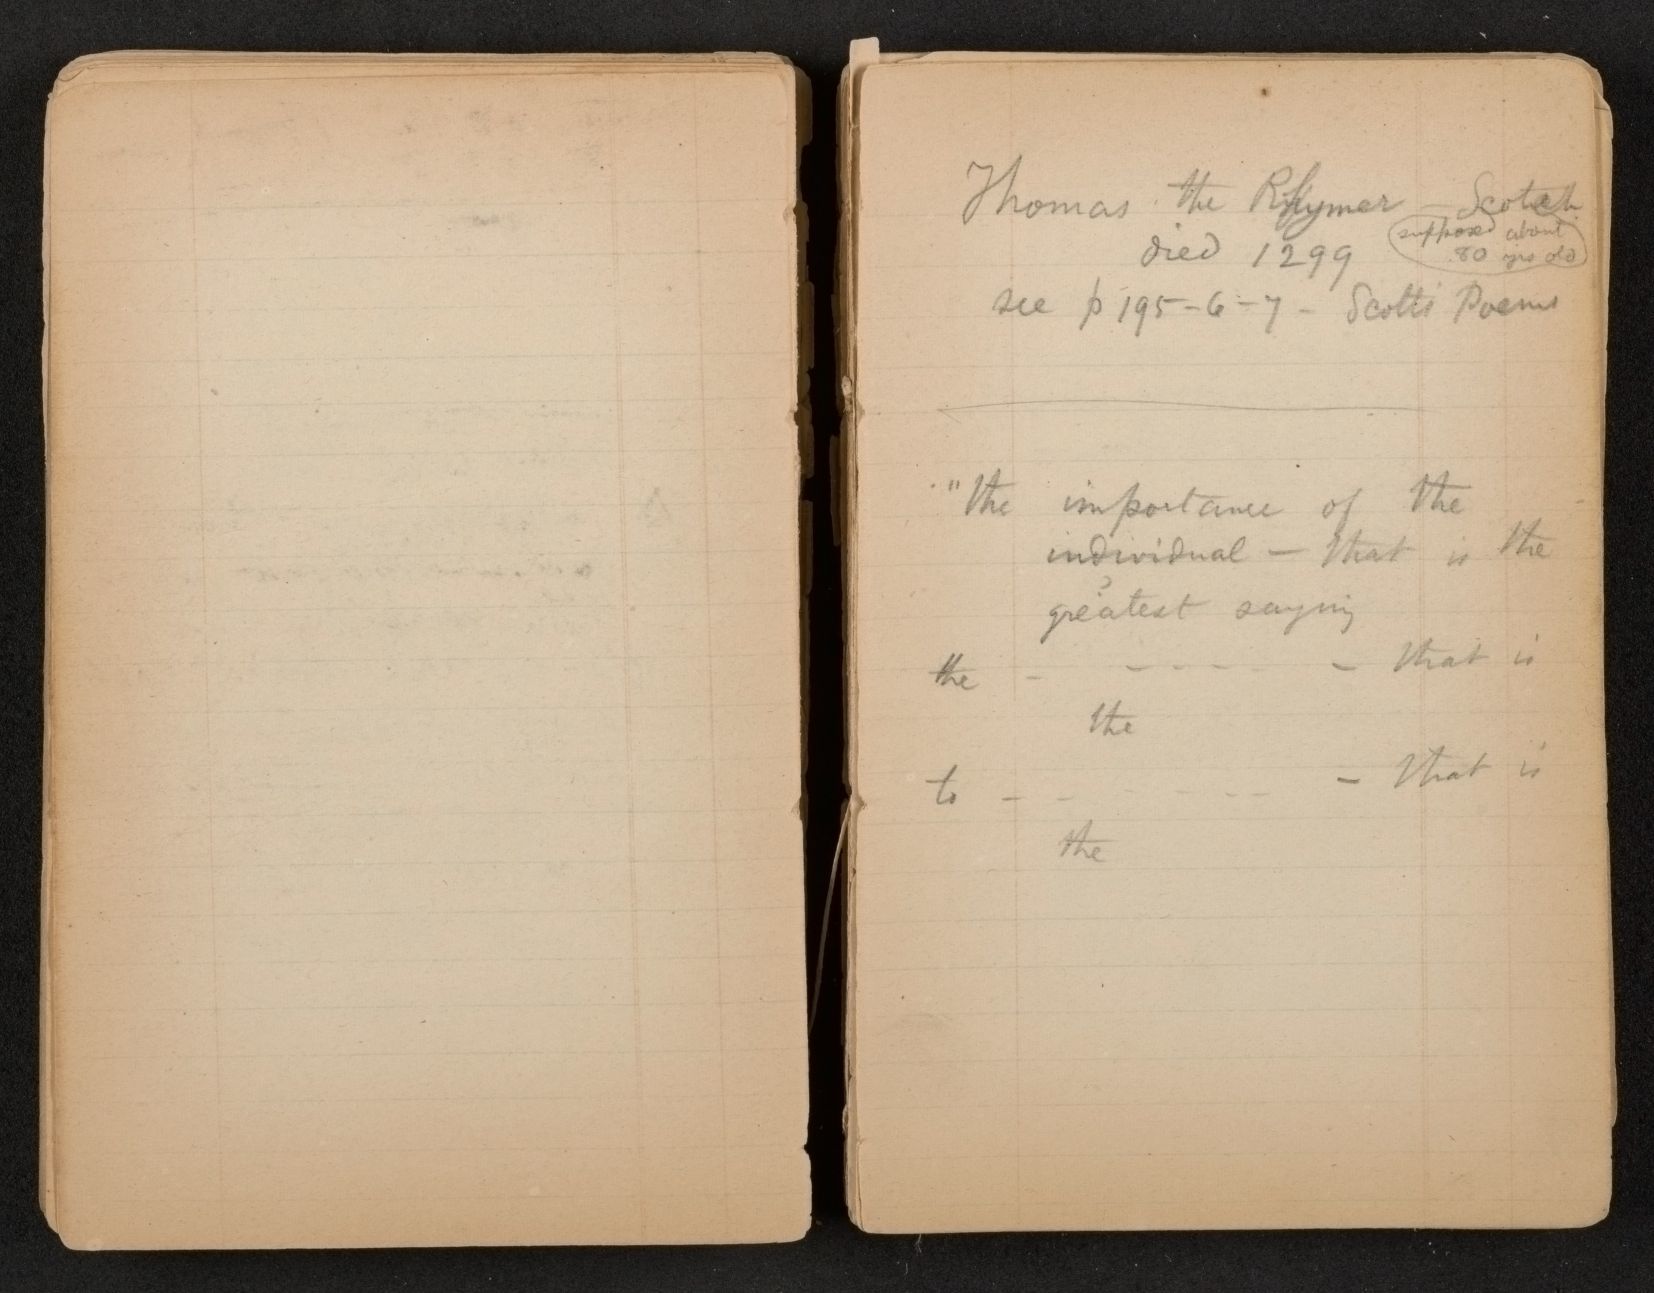 Thomas the Rhymer – Scotch
died 1299 (supposed about
80 yrs old)
see p 195-6-7 – Scott's Poems
"the importance of the
individual – that is the
greatest saying
the - - - - - – that is
the
to - - - - - - – that is
the